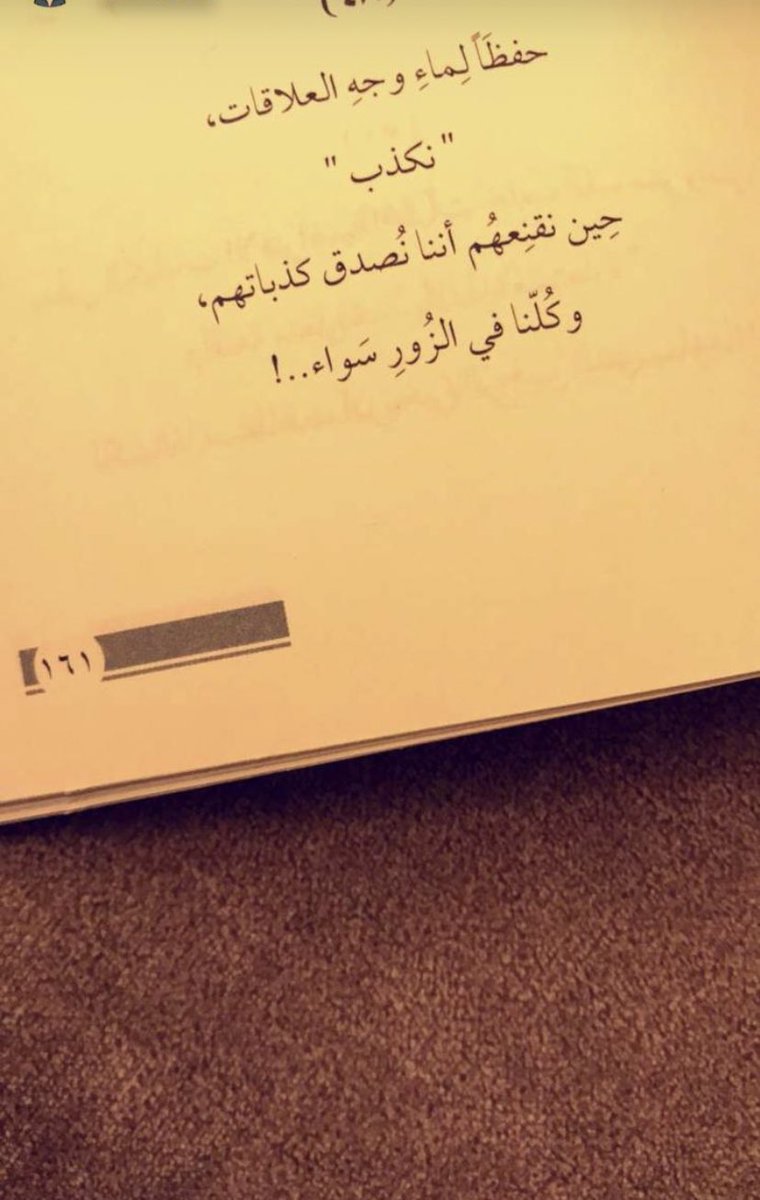 حفظَاً لِماءِ وجهِ العلاقات،
"نكذب "
حِين نقنِعهُم أننا نُصدق كذباتهم،
وكُلّنا في الزُورِ سَواء..!
(١٦١)